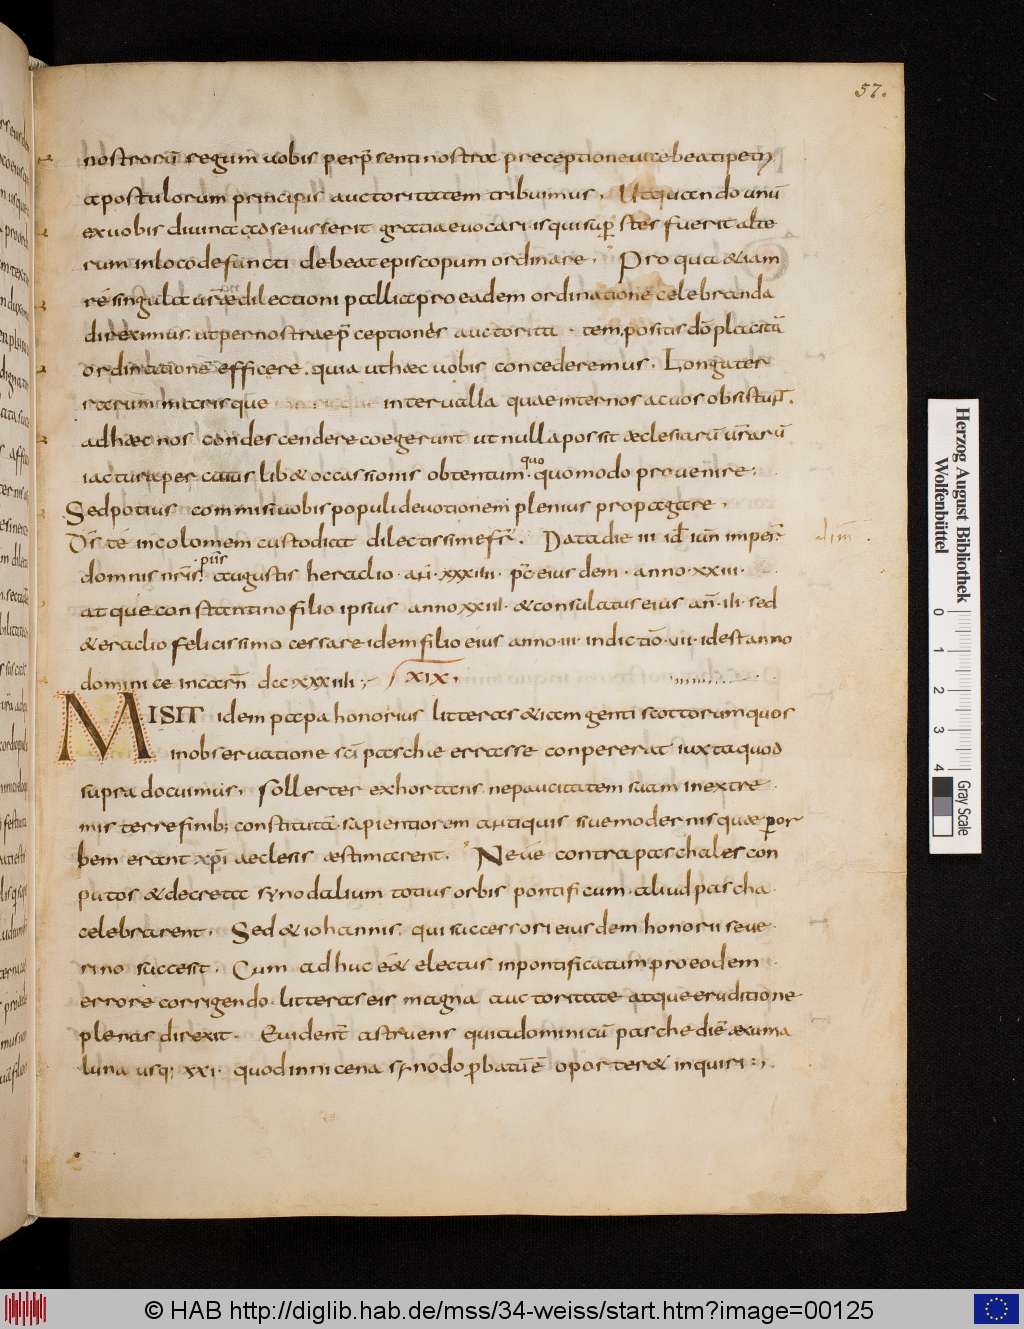 57.
nostrorū regum uobis perp̄senti nostrae preceptione uice beati petri
apostulorum principis auctoritatem tribuimus. Ut quando unū
ex uobis diuina ad se iusserit gratia euocari. is qui sup̄stes fuerit alte
rum in loco defuncti debeat episcopum ordinare. Pro qua & iam
re singula ur̄ae dilectioni pallia pro eadem ordinatione celebranda
direximus. ut per nostrae p̄ceptionės auctorita tem. positis dō placitā
ordinationē efficere. quia ut haec uobis concederemus. Longa ter
rarum marisque interualla quae inter nos ac uos obsistunt.
ad haec nos condescendere coegerunt ut nulla possit aeclesiarū ur̄arū
iactura per cuius lib& occassionis obtentum. quo quomodo prouenire.
Sed potius commisi uobis populi deuotionem plenius propagare.
D̄s te incolomem custodiat dilectissime fr̄. Data die iii id iun imper.
domnis nr̄is piis augustis heraclio. an. xxxiiii. pc̄ eius dem. anno. xxiii.
atque constantino filio ipsius anno xxiii. & consulatus eius an̄. iii. sed
& eraclio felicissimo cessare idem filio eius anno. iii. indictiō. vii. id est anno
dominice incarn̄ dcc xxxiiii. XIX.
MISIT idem papa honorius litteras & iam genti scottorum quos
in obseruatione sci paschae errasse conpererat iuxta quod
supra docuimus. sollerter exhortans. ne paucitatem suam in extre
mis terre finib; constitutā. sapientiorem antiquis siue modernis quae p̄ or
bem erant xp̄i aeclesiis aestimarent. Neue contra paschales con
putos & decreta synodalium totius orbis pontificum. aliud pascha
celebrarent. Sed & iohannis. qui successori eiusdem honorii seue
rino succesit. Cum adhuc eē& electus in pontificatum pro eodem
errore corrigendo. litteras eis magna auctoritate atque eruditione
plenas direxit. Euident̄ astruens quia dominicū pasche diē a xu ma
luna usq; xxi. quod in nicena synodo p̄batū ē oporter& inquiri:,
Herzog August Bibliothek
Wolfenbüttel
0 1 2 3 4
Gray Scale
© HAB http://diglib.hab.de/mss/34-weiss/start.htm?image=00125